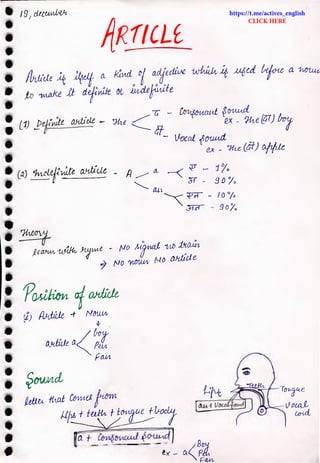 19, december
https://t.me/actives_english
CLICK HERE
ARTICLE
Article is itself a kind of adjective which is used before a noun
to make it definite or indefinite
(1) Definite article - The
द - Consonant Sound
ex - The (दा) boy
दी - Vocal Sound
ex - The (दी) apple
(2) Indefinite article - A
a
ए - 1%
अ - 90%
an
एन - 10%
अन - 90%
Theory
learn with Ryme - No signal no train
⇒ No noun No article
Position of article
1) Article + Noun
article a
boy
Pen
Fan
Sound
letter that comes from
Lips + teeth + tongue + body
a + Consonant Sound
ex - a
Boy
Pen
Fan
Lips
Teeth
Tongue
an + Vocal Sound
Vocal
cord